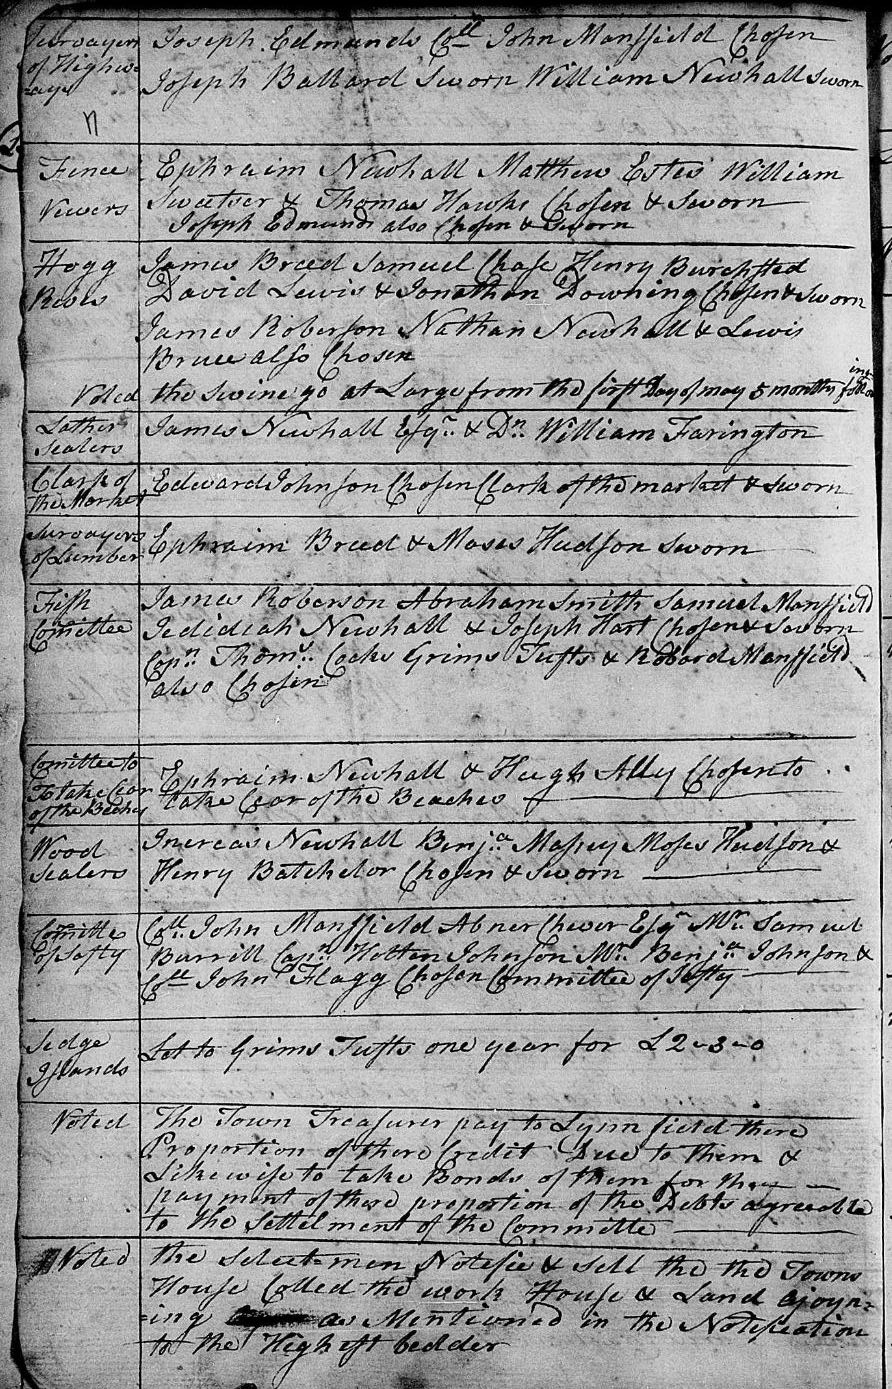 Survayers Joseph Edmunds Coll John Mansfield Chosen
of Highw=
ays Joseph Ballard Sworn William Newhall Sworn
Fence Ephraim Newhall Matthew Estes William
Vewers Sweetser & Thomas Hawks Chosen & Sworn
Joseph Edmunds also Chosen & Sworn
Hogg James Breed Samuel Chase Henry Burchsted
Reves David Lewis & Jonathan Downing Chosen & Sworn
James Roberson Nathan Newhall & Lewis
Bruce also Chosen
Voted the Swine go at Large from the first Day of may 5 months
Lather James Newhall Esqr. & Dn. William Farington
Sealers
Clark of Edward Johnson Chosen Clark of the market & Sworn
the Market
Survayors Ephraim Breed & Moses Hudson Sworn
of Lumber
Fish James Roberson Abraham Smith Samuel Mansfield
Comittee Jedidiah Newhall & Joseph Hart Chosen & Sworn
Capn. Thoms. Cocks Grims Tufts & Robard Mansfield
also Chosen
Comittee to Ephraim Newhall & Heugh Ally Chosen to
To take Cear take Cear of the Beaches
of the Beches
Wood Increas Newhall Benja. Massey Moses Hudson &
Sealers Henry Batchelor Chosen & Sworn
Comitte Coll. John Mansfield Abner Chever Esqr Mr. Samuel
of Safty Burrill Capn. Holten Johnson Mr. Benja. Johnson &
Coll John Flagg Chosen Committee of Safty
Sedge Let to Grims Tufts one year for £ 2-3-0
Islands
Voted The Town Treasurer pay to Lynnfield there
Proportion of there Credit Due to them &
Likewise to take Bonds of them for the
payment of there proportion of the Debts agreeable
to the Settelment of the Committe
Voted the Select=men Notefie & Sell the the Towns
House Colled the work House & Land ajoyn=
=ing as Mentioned in the Notefication
to the Highest bedder